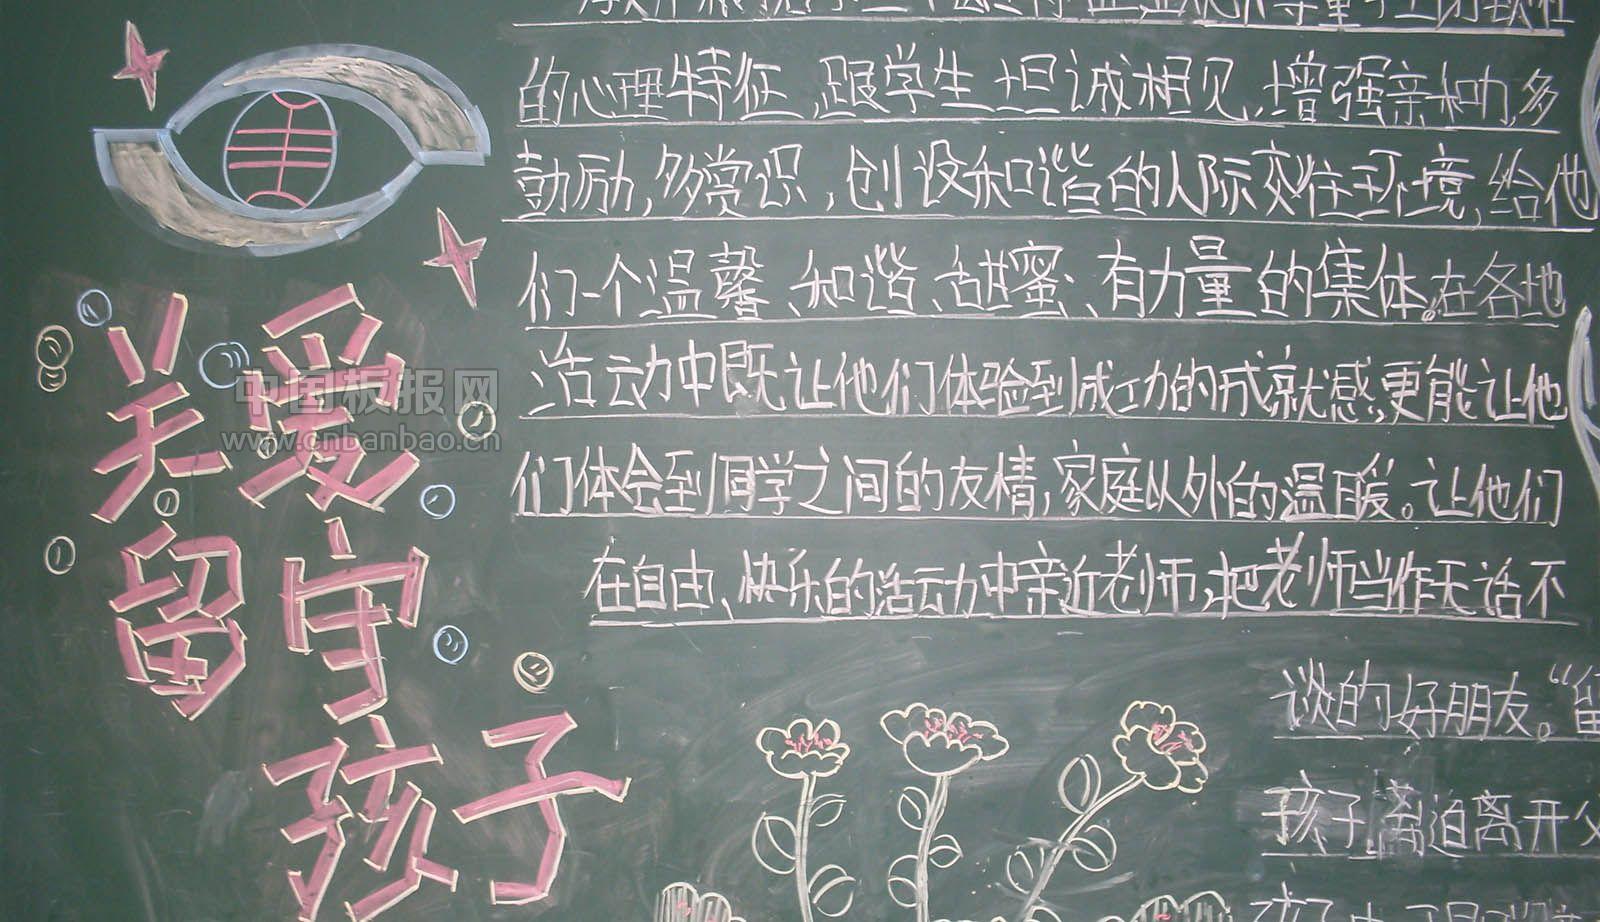 关爱
留守
孩子
的心理特征,跟学生坦诚相见,增强亲和力,多
鼓励,多赏识,创设和谐的人际交往环境,给他
们一个温馨、和谐、甜蜜、有力量的集体。在各地
活动中既让他们体验到成功的成就感,更能让他
们体会到同学之间的友情,家庭以外的温暖。让他们
在自由、快乐的活动中亲近老师,把老师当作无话不
谈的好朋友。“留
孩子 迫离开父
中国板报网
www.cnbanbao.cn